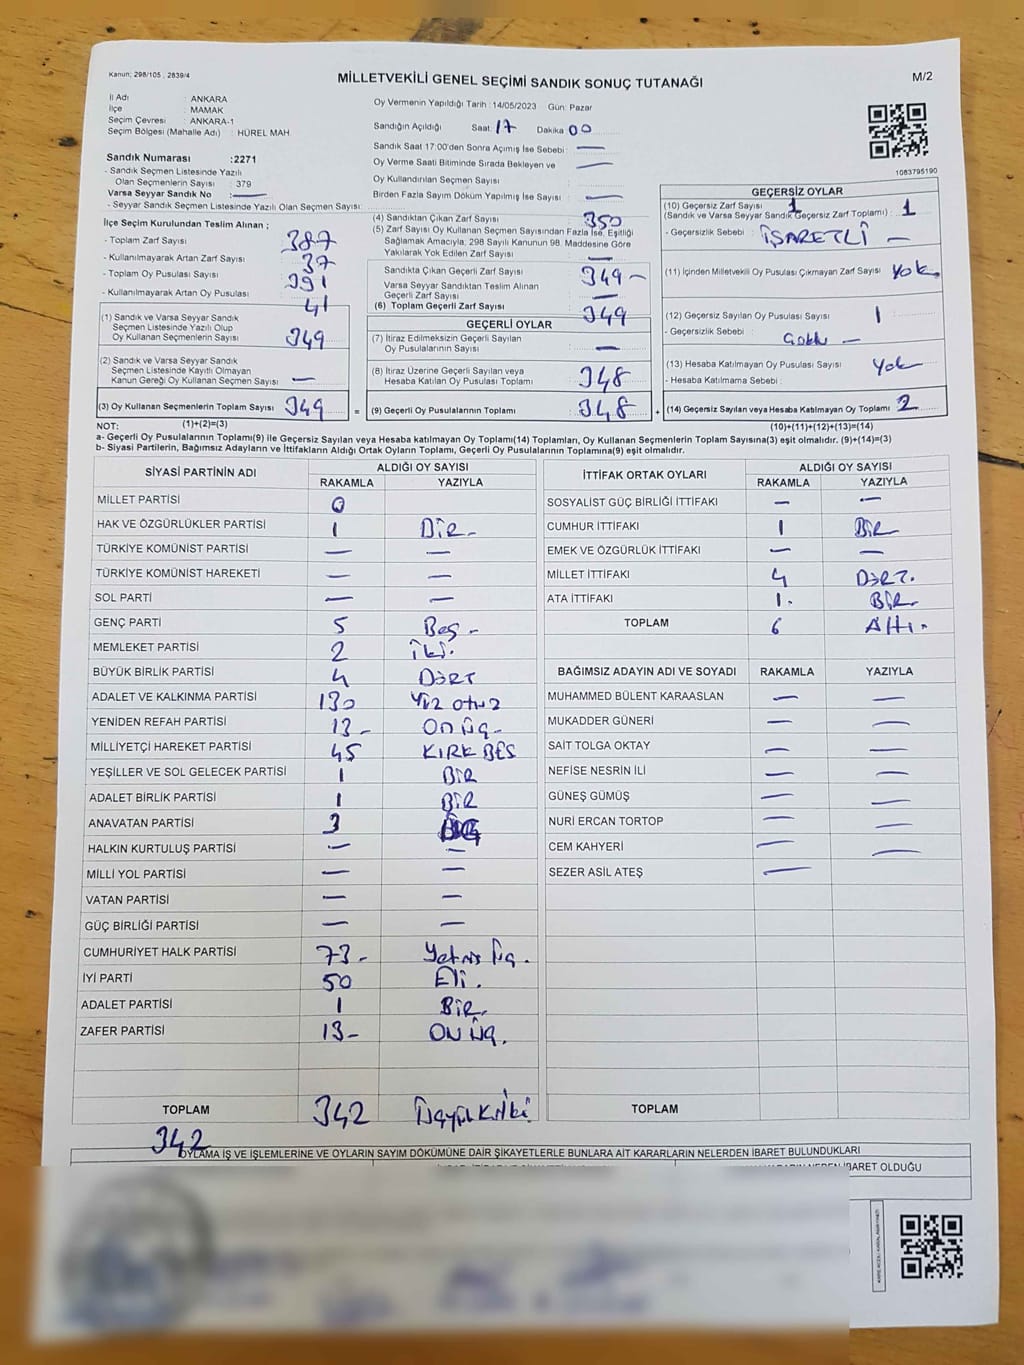 Kanun: 298/105 , 2839/4
MİLLETVEKİLİ GENEL SEÇİMİ SANDIK SONUÇ TUTANAĞI
M/2
İl Adı : ANKARA
İlçe : MAMAK
Seçim Çevresi : ANKARA-1
Seçim Bölgesi (Mahalle Adı) : HÜREL MAH.
Sandık Numarası :2271
- Sandık Seçmen Listesinde Yazılı
Olan Seçmenlerin Sayısı : 379
Varsa Seyyar Sandık No : —
- Seyyar Sandık Seçmen Listesinde Yazılı Olan Seçmen Sayısı:
Oy Vermenin Yapıldığı Tarih : 14/05/2023 Gün: Pazar
Sandığın Açıldığı Saat: 17 Dakika 00
Sandık Saat 17:00'den Sonra Açımış İse Sebebi : —
Oy Verme Saati Bitiminde Sırada Bekleyen ve —
Oy Kullandırılan Seçmen Sayısı :
Birden Fazla Sayım Döküm Yapılmış İse : —
1083795190
İlçe Seçim Kurulundan Teslim Alınan ;
- Toplam Zarf Sayısı : 387
- Kullanılmayarak Artan Zarf Sayısı : 37
- Toplam Oy Pusulası Sayısı : 391
- Kullanılmayarak Artan Oy Pusulası : 41
(1) Sandık ve Varsa Seyyar Sandık
Seçmen Listesinde Yazılı Olup
Oy Kullanan Seçmenlerin Sayısı : 349
(2) Sandık ve Varsa Seyyar Sandık
Seçmen Listesinde Kayıtlı Olmayan
Kanun Gereği Oy Kullanan Seçmen Sayısı : —
(3) Oy Kullanan Seçmenlerin Toplam Sayısı : 349
(4) Sandıktan Çıkan Zarf Sayısı : 350
(5) Zarf Sayısı Oy Kullanan Seçmen Sayısından Fazla İse, Eşitliği
Sağlamak Amacıyla, 298 Sayılı Kanunun 98. Maddesine Göre
Yakılarak Yok Edilen Zarf Sayısı : —
Sandıkta Çıkan Geçerli Zarf Sayısı : 349 —
Varsa Seyyar Sandıktan Teslim Alınan
Geçerli Zarf Sayısı : —
(6) Toplam Geçerli Zarf Sayısı : 349
GEÇERLİ OYLAR
(7) İtiraz Edilmeksizin Geçerli Sayılan
Oy Pusulalarının Sayısı : —
(8) İtiraz Üzerine Geçerli Sayılan veya
Hesaba Katılan Oy Pusulası Toplamı : 348
= (9) Geçerli Oy Pusulalarının Toplamı : 348
GEÇERSİZ OYLAR
(10) Geçersiz Zarf Sayısı 1
(Sandık ve Varsa Seyyar Sandık Geçersiz Zarf Toplamı) : 1
- Geçersizlik Sebebi : İŞARETLİ —
(11) İçinden Milletvekili Oy Pusulası Çıkmayan Zarf Sayısı : Yok
(12) Geçersiz Sayılan Oy Pusulası Sayısı : 1
- Geçersizlik Sebebi :
(13) Hesaba Katılmayan Oy Pusulası Sayısı : Yok
- Hesaba Katılmama Sebebi :
+ (14) Geçersiz Sayılan veya Hesaba Katılmayan Oy Toplamı : 2
NOT: (1)+(2)=(3) (10)+(11)+(12)+(13)=(14)
a- Geçerli Oy Pusulalarının Toplamı(9) ile Geçersiz Sayılan veya Hesaba katılmayan Oy Toplamı(14) Toplamları, Oy Kullanan Seçmenlerin Toplam Sayısına(3) eşit olmalıdır. (9)+(14)=(3)
b- Siyasi Partilerin, Bağımsız Adayların ve İttifakların Aldığı Ortak Oyların Toplamı, Geçerli Oy Pusulalarının Toplamına(9) eşit olmalıdır.
SİYASİ PARTİNİN ADI ALDIĞI OY SAYISI
RAKAMLA YAZIYLA
MİLLET PARTİSİ 0
HAK VE ÖZGÜRLÜKLER PARTİSİ 1 BİR —
TÜRKİYE KOMÜNİST PARTİSİ — —
TÜRKİYE KOMÜNİST HAREKETİ — —
SOL PARTİ — —
GENÇ PARTİ 5 Beş —
MEMLEKET PARTİSİ 2 İki.
BÜYÜK BİRLİK PARTİSİ 4 DÖRT
ADALET VE KALKINMA PARTİSİ 130 Yüz otuz
YENİDEN REFAH PARTİSİ 13 — On üç —
MİLLİYETÇİ HAREKET PARTİSİ 45 KIRK BEŞ
YEŞİLLER VE SOL GELECEK PARTİSİ 1 BİR
ADALET BİRLİK PARTİSİ 1 BİR
ANAVATAN PARTİSİ 3
HALKIN KURTULUŞ PARTİSİ — —
MİLLİ YOL PARTİSİ — —
VATAN PARTİSİ — —
GÜÇ BİRLİĞİ PARTİSİ — —
CUMHURİYET HALK PARTİSİ 73 — Yetmiş üç.
İYİ PARTİ 50 Elli.
ADALET PARTİSİ 1 BİR.
ZAFER PARTİSİ 13 — ON üç.
TOPLAM 342 Üçyüz Kırkiki
342
İTTİFAK ORTAK OYLARI ALDIĞI OY SAYISI
RAKAMLA YAZIYLA
SOSYALİST GÜÇ BİRLİĞİ İTTİFAKI — —
CUMHUR İTTİFAKI 1 BİR
EMEK VE ÖZGÜRLÜK İTTİFAKI — —
MİLLET İTTİFAKI 4 DÖRT.
ATA İTTİFAKI 1. BİR.
TOPLAM 6 Altı.
BAĞIMSIZ ADAYIN ADI VE SOYADI RAKAMLA YAZIYLA
MUHAMMED BÜLENT KARAASLAN — —
MUKADDER GÜNERİ — —
SAİT TOLGA OKTAY — —
NEFİSE NESRİN İLİ — —
GÜNEŞ GÜMÜŞ — —
NURİ ERCAN TORTOP — —
CEM KAHYERİ — —
SEZER ASİL ATEŞ —
TOPLAM
OYLAMA İŞ VE İŞLEMLERİNE VE OYLARIN SAYIM DÖKÜMÜNE DAİR ŞİKAYETLERLE BUNLARA AİT KARARLARIN NELERDEN İBARET BULUNDUKLARI
İBARET OLDUĞU